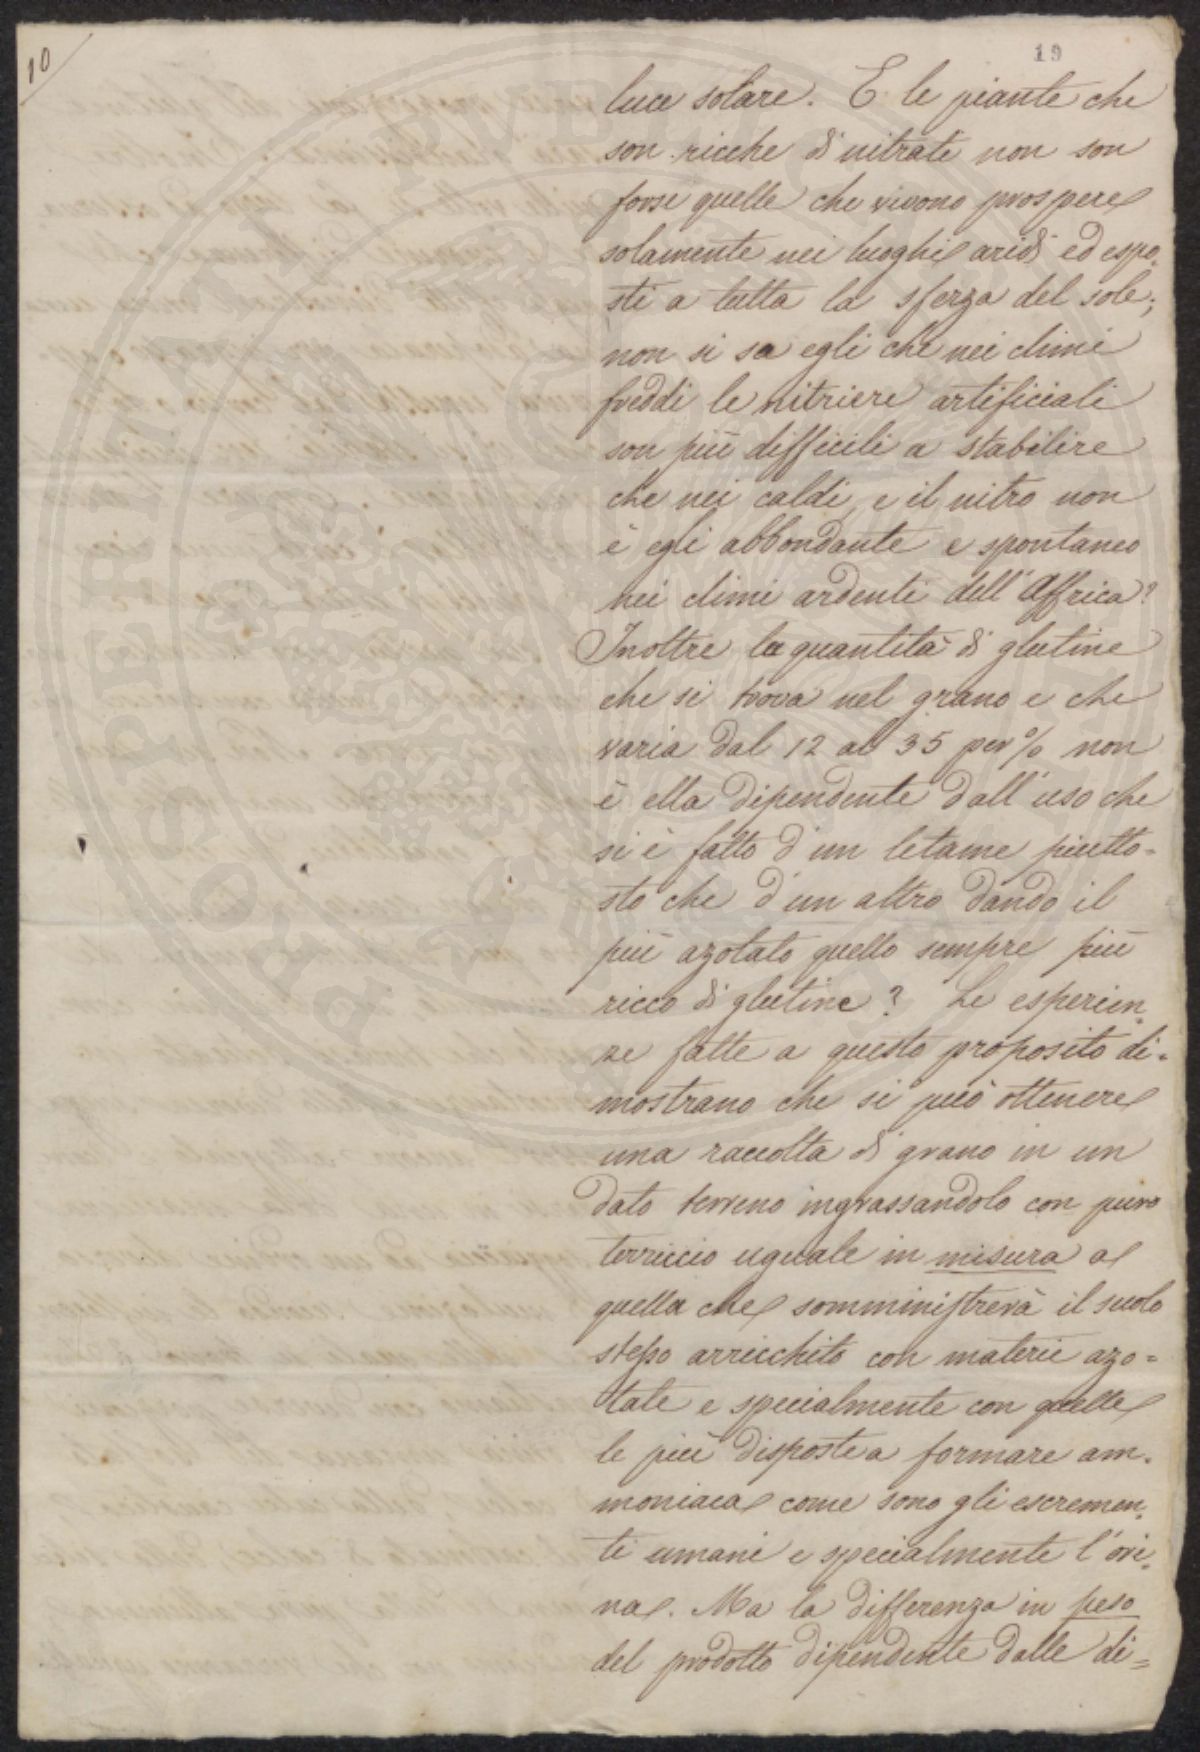 10
19
luce solare. E le piante che
son ricche di nitrate non son
forse quelle che vivono prospere
solamente nei luoghi aridi ed espo-
sti a tutta la sferza del sole;
non si sa egli che nei climi
freddi le nitriere artificiali
son più difficili a stabilire
che nei caldi, e il nitro non
è egli abbondante e spontaneo
nei climi ardenti dell'Affrica?
Inoltre la quantità di glutine
che si trova nel grano e che
varia dal 12 al 35 per % non
è ella dipendente dall'uso che
si è fatto d'un letame piutto-
sto che d'un altro dando il
più azotato quello sempre più
ricco di glutine? Le esperien-
ze fatte a questo proposito di-
mostrano che si può ottenere
una raccolta di grano in un
dato terreno ingrassandolo con puro
terriccio uguale in misura a
quella che somministrerà il suolo
stesso arricchito con materie azo-
tate e specialmente con quelle
le più disposte a formare am-
moniaca come sono gli escremen-
ti umani e specialmente l'ori-
na. Ma la differenza in peso
del prodotto dipendente dalle di-
PROSPERITATI PVBLICAE